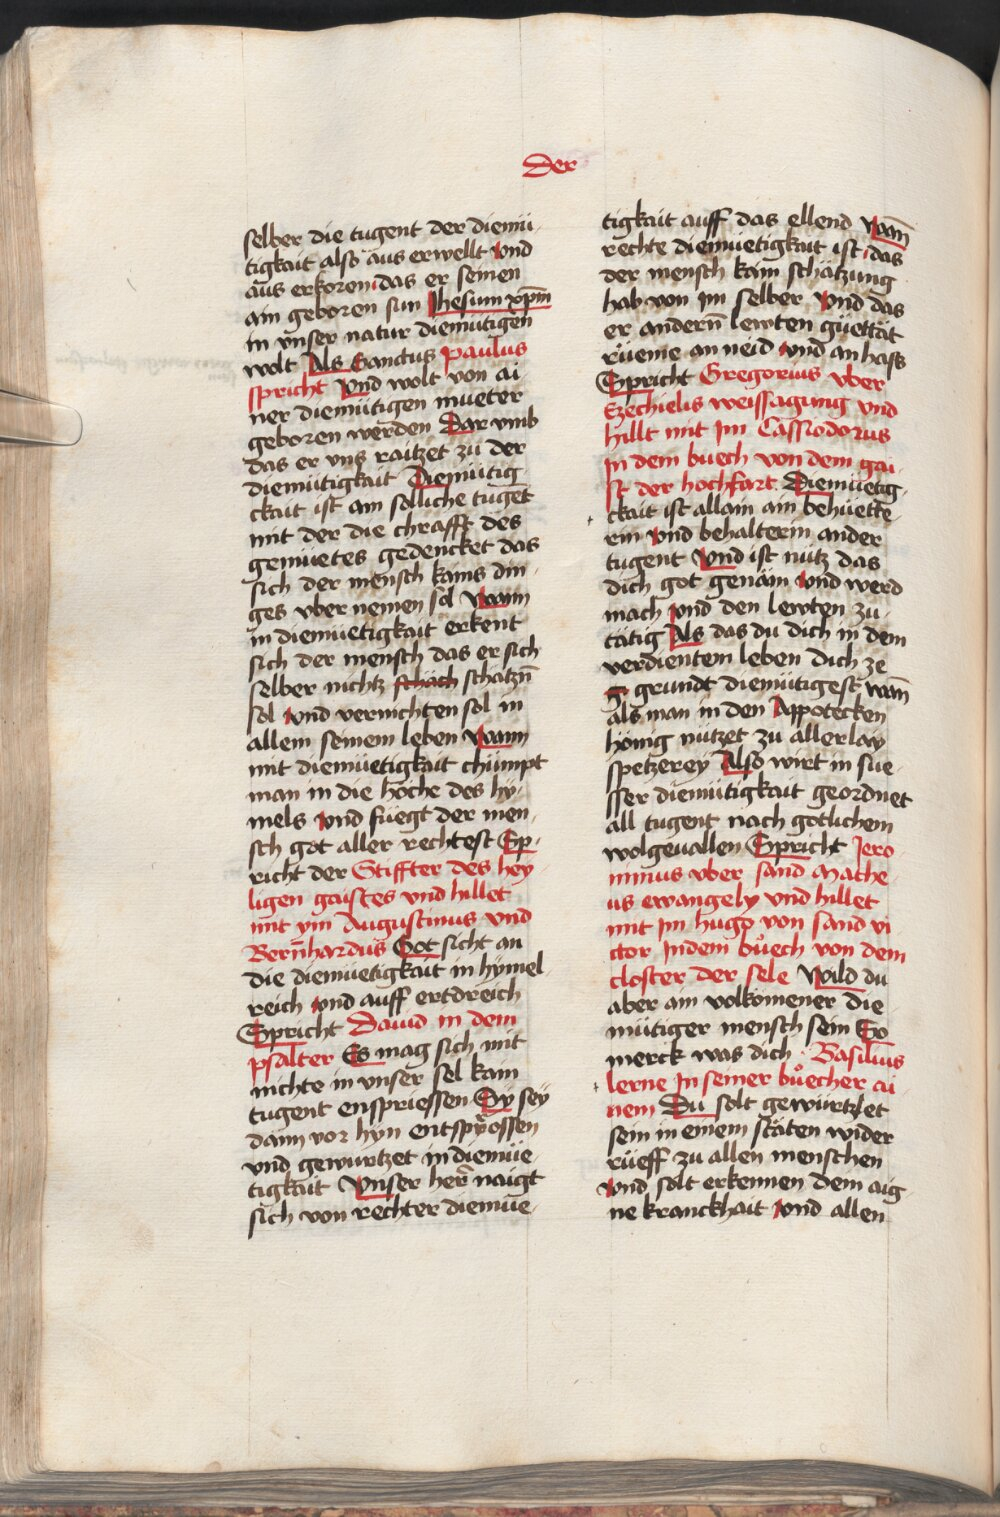 Der
selber die tugent der diemü-
tigkait also aus erwellt Vnd
aus erkoren das er seinen
ain geboren sun Jhesum xp̄m
in vnser natur diemütigen
wolt Als Sanctus Paulus
spricht Vnd wolt von ai
ner diemütigen mueter
geboren werden Dar vmb
das er vns raitzet zu der
diemütigkait Diemütig
ckait ist ain solliche tugēt
mit der die chrafft des
gemüetes gedencket das
sich der mensch kains din-
ges vber nemen sol Wann
in diemüetigkait erkent
sich der mensch das er sich
selber nichtz schäch schätzn̄
sol Vnd vernichten sol in
allem seinem leben Wann
mit diemüetigkait chümpt
man in die höche des hy-
mels Vnd füegt der men-
sch got aller rechtest Sp-
richt der Stiffter des hey-
ligen gaistes vnd hillet
mit ym Augustinus vnd
Bern̄hardus Got sicht an
die diemüetigkait in hymel
reich vnd auff ertdreich
Spricht Dauid in dem
psalter Es mag sich mit
nichte in vnser sel kain
tugent enspriessen Sy sey
dann vor hyn entsprossen
vnd gewurtzet in diemüe-
tigkait Vnser her̄ naigt
sich von rechter diemüe-
tigkait auff das ellend Wan̄
rechte diemüetigkait ist das
der mensch kain schätzung
hab von im selber Vnd das
er andern̄ lewten güettät
rüeme an neid vnd an hass
Spricht Gregorius vber
Ezechielis weissagung vnd
hillt mit Im Cassiodorus
In dem buech von dem gai-
st der hochfart Diemüetig-
ckait ist allain ain behüette-
rin Vnd behalterin ander
tugent Vnd ist nütz das
dich got genäm Vnd werd
mach vnd den lewten zu-
tätig Als das du dich in dem
verdientem leben dich ze
grundt diemütigest wan̄
als man in den Appotecken
hönig nützet zu allerlay
spetzerey Also wirt in sue-
sser diemütigkait geordnet
all tugent nach gotlichem
wolgeuallen Spricht Jero
nimus vber sand Mathe-
us ewangely vnd hillet
mit Im hugo von sand vi
ctor Indem bůech von dem
closter der sele Wild du
aber ain volkomener die
mütiger mensch sein So
merck was dich Basilius
lerne In seiner bůecher ai
nem Du solt gewürtzlet
sein in einem stäten wider
rüeff zu allen menschen
Vnd solt erkennen dein aig-
ne kranckhait Vnd allen